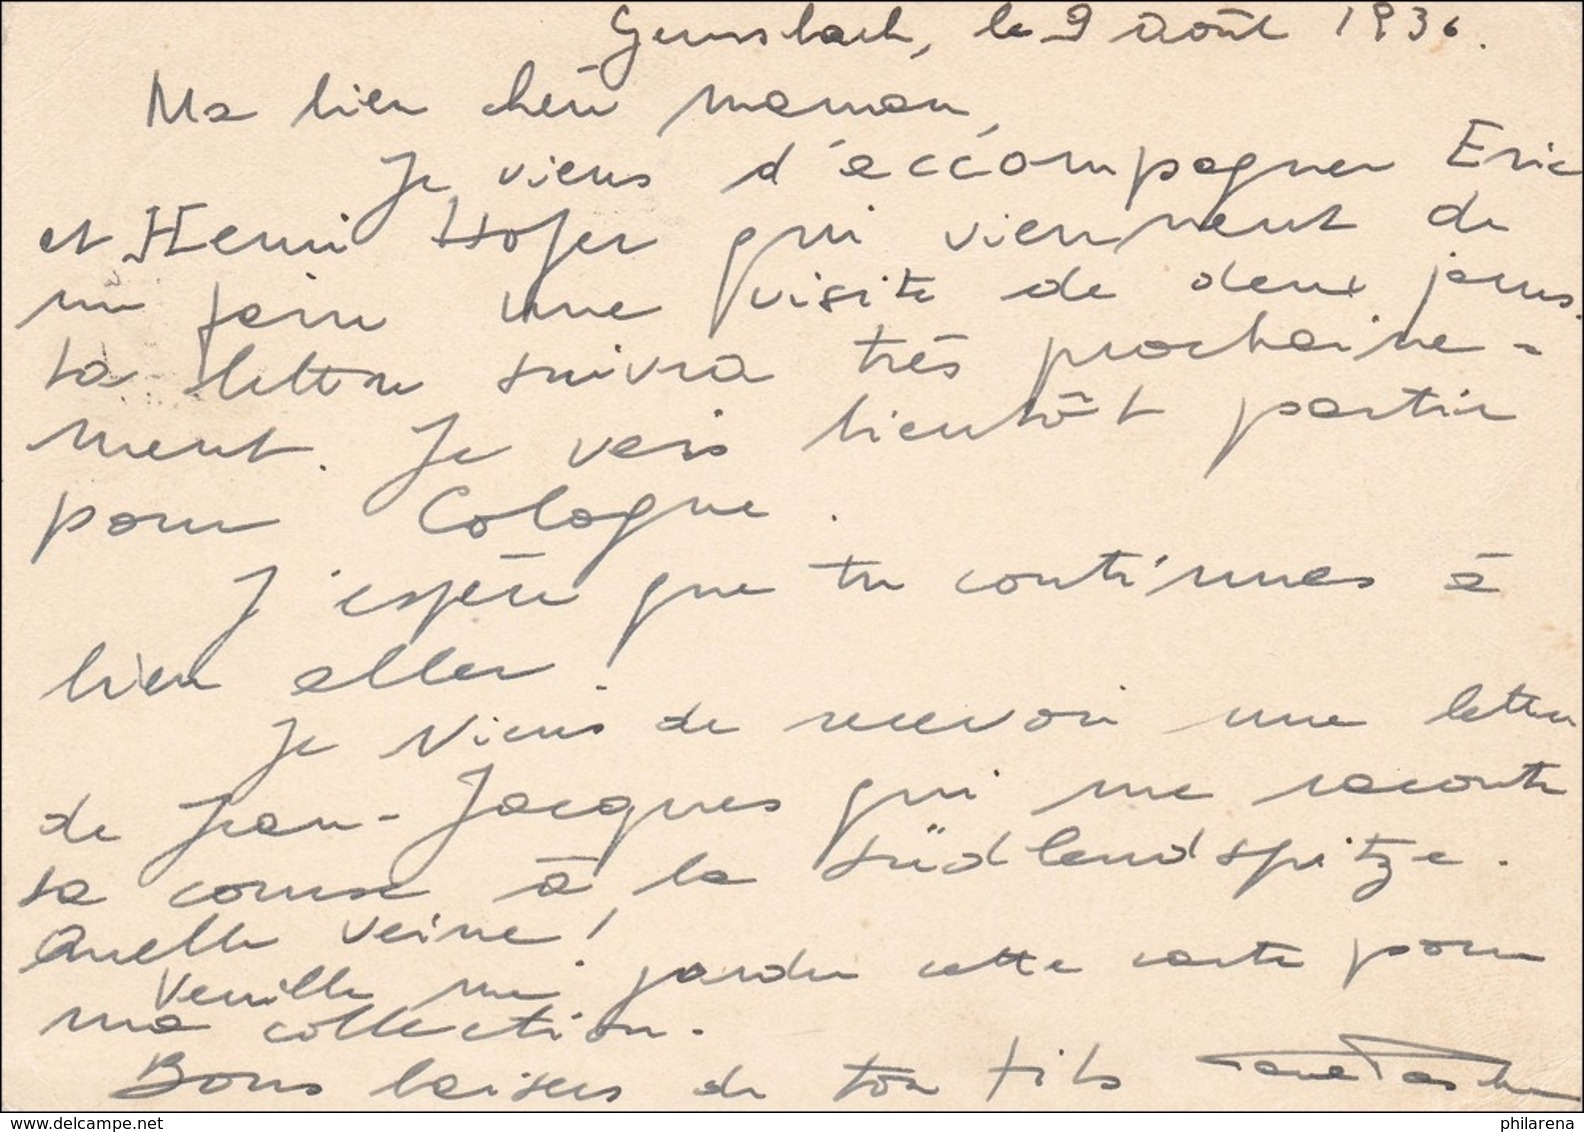 Gunsbach, le 9 août 1936.
Ma bien chère maman,
Je viens d'accompagner Eric
et Henri Hofer qui viennent de
me faire une visite de deux jours.
Ta lettre suivra très prochaine-
ment. Je vais bientôt partir
pour Cologne.
J'espère que tu continues à
bien aller!
Je viens de recevoir une lettre
de Jean-Jacques qui me raconte
sa course à la Südlendspitze.
Quelle veine!
Veuille me garder cette carte pour
ma collection.
Bons baisers de ton fils
www.delcampe.net
philarena